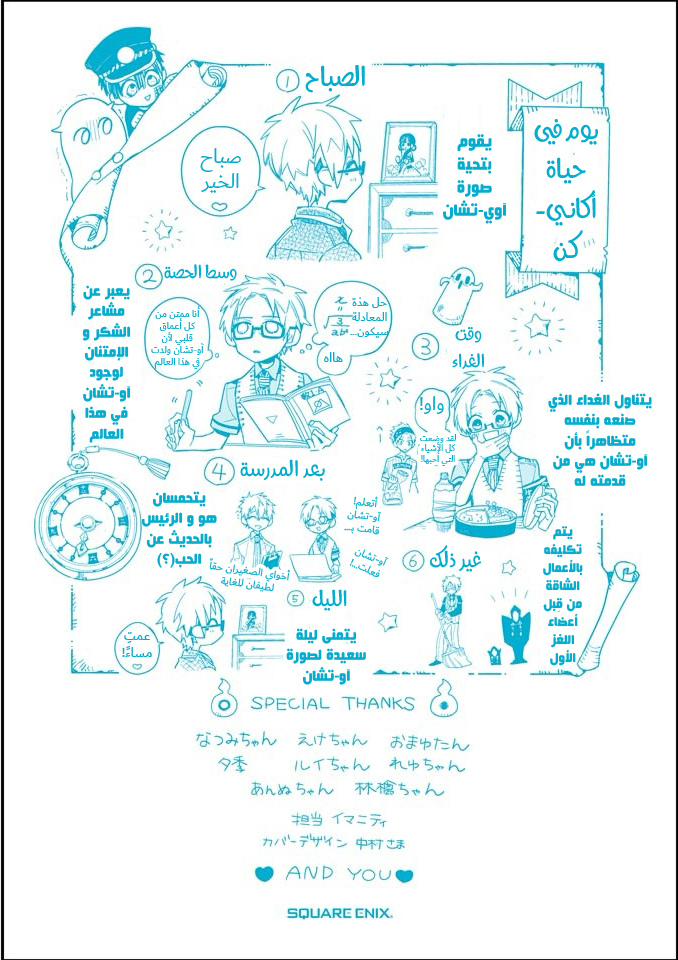 يوم في
حياة
أكاني-
كن
① الصباح
صباح
الخير
يقوم
بتحية
صورة
آوي-تشان
② وسط الحصة
حل هذة
المعادلة
سيكون...
هااه
أنا ممتن من
كل أعماق
قلبي لأن
أو-تشان ولدت
في هذا العالم
يعبر عن
مشاعر
الشكر و
الإمتنان
لوجود
أو-تشان
في هذا
العالم
③ وقت
الغداء
واو!
لقد وضعت
كل الأشياء
التي أحبها!
يتناول الغداء الذي
صنعه بنفسه
متظاهراً بأن
أو-تشان هي من
قدمته له
④ بعد المدرسة
أتعلم!
أو-تشان
قامت بـ...
أو-تشان
فعلت...!
أخواي الصغيران حقاً
لطيفان للغاية
يتحمسان
هو و الرئيس
بالحديث عن
الحب(؟)
⑤ الليل
عمتِ
مساءً!
يتمنى ليلة
سعيدة لصورة
أو-تشان
⑥ غير ذلك
يتم
تكليفه
بالأعمال
الشاقة
من قبل
أعضاء
اللغز
الأول
SPECIAL THANKS
なつみちゃん えけちゃん おまゆたん
夕季 ルイちゃん れゅちゃん
あんぬちゃん 林檎ちゃん
担当 イマニティ
カバーデザイン 中村さま
AND YOU
SQUARE ENIX.